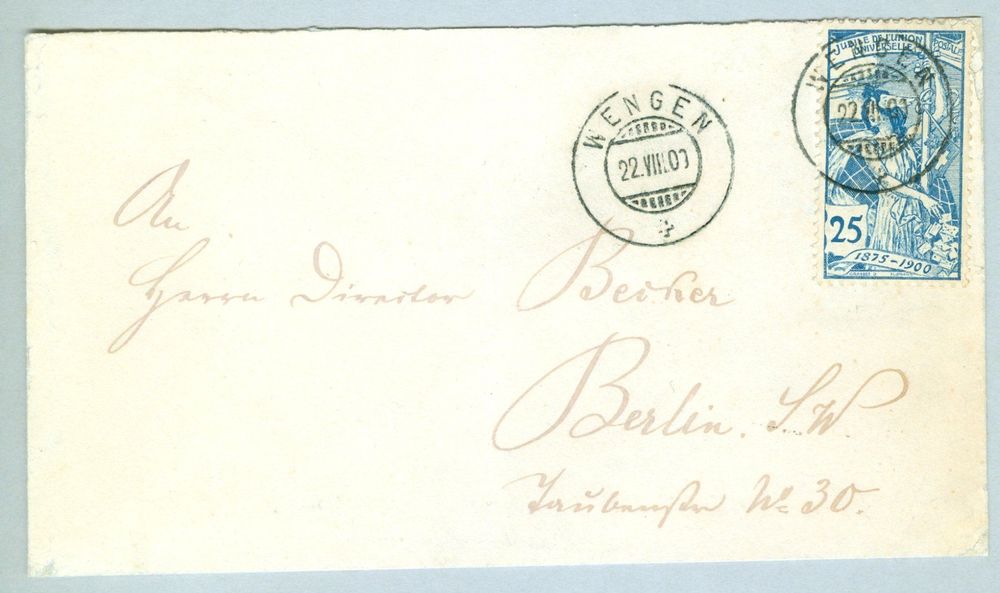 WENGEN
22.VIII.00
JUBILÉ DE L'UNION POSTALE
UNIVERSELLE
WENGEN
22.VIII.00
25
1875–1900
An
Herrn Director Becker
Berlin. S.W.
Taubenstr No 30.